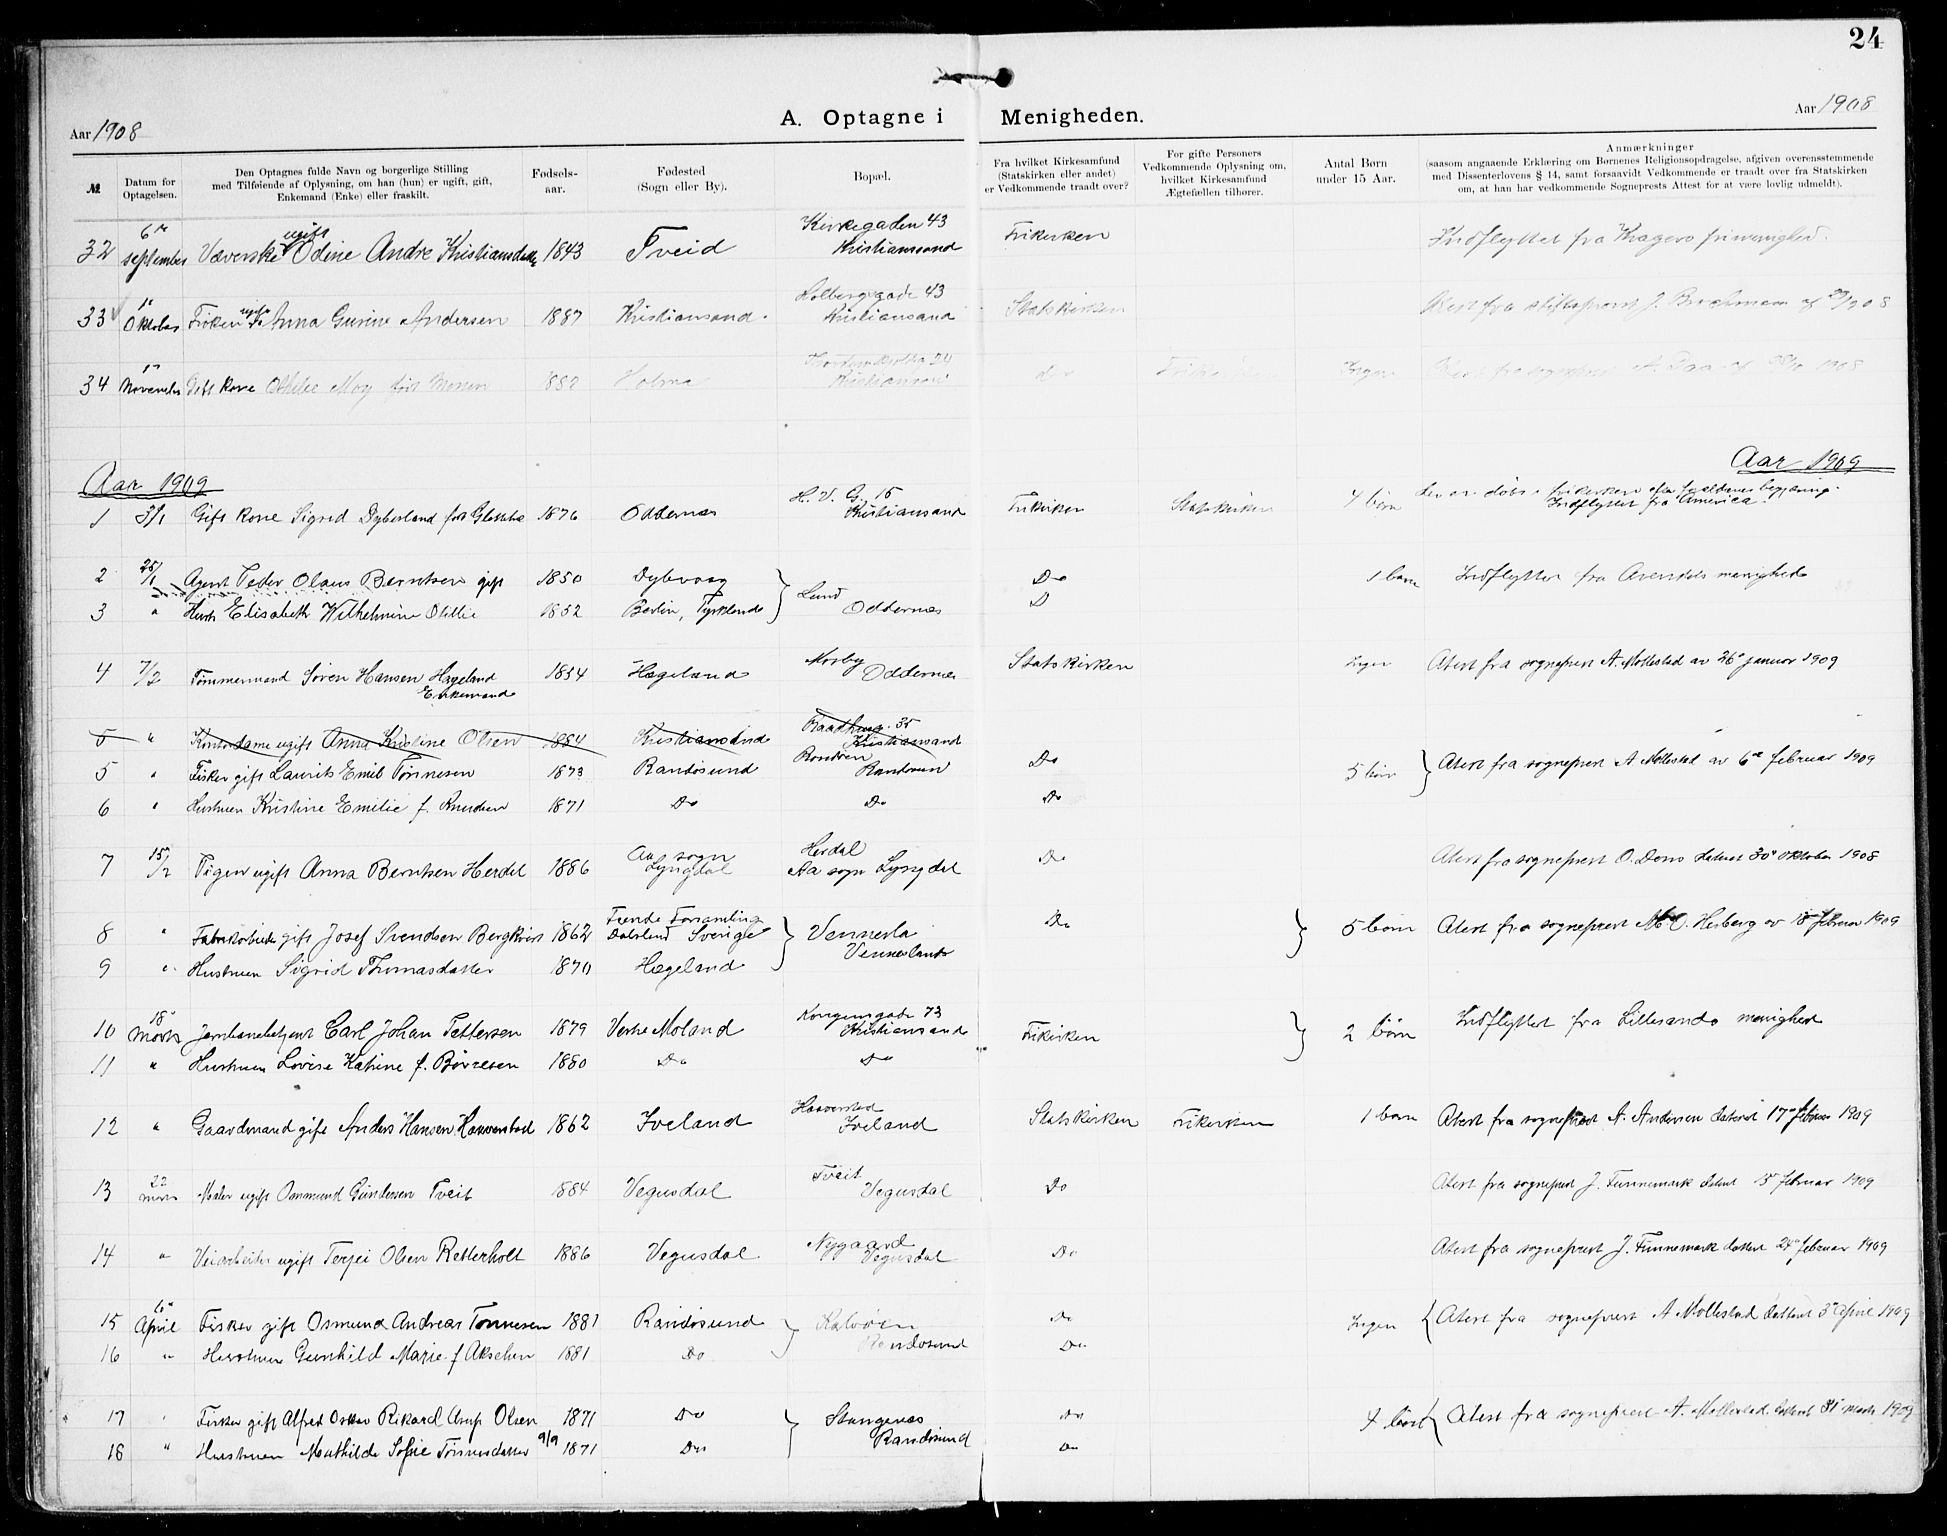 24
Aar 1908
A. Optagne i Menigheden.
Aar 1908
№
Datum for Optagelsen.
Den Optagnes fulde Navn og borgerlige Stilling
med Tilføiende af Oplysning, om han (hun) er ugift, gift,
Enkemand (Enke) eller fraskilt.
Fødsels-
aar.
Fødested
(Sogn eller By).
Bopæl.
Fra hvilket Kirkesamfund
(Statskirken eller andet)
er Vedkommende traadt over?
For gifte Personers
Vedkommende Oplysning om,
hvilket Kirkesamfund
Ægtefællen tilhører.
Antal Børn
under 15 Aar.
Anmærkninger
(saasom angaaende Erklæring om Børnenes Religionsopdragelse, afgiven overensstemmende
med Dissenterlovens § 14, samt forsaavidt Vedkommende er traadt over fra Statskirken
om, at han har vedkommende Sogneprests Attest for at være lovlig udmeldt).
32 6te september Væverske ugift Odine Andre 1843 Tveid Kirkegaden 43 Kristiansand Frikirken Indflyttet fra Kragerø frimenighed.
33 1e Oktober Frøken ugift Anna Gurine Andersen 1887 Kristiansand. Holbergsgade 43 Kristiansand Statskirken
34 1e November Gift kone Moy født 1882 Holme 24 Kristiansand do Ingen 1908
Aar 1909
Aar 1909
1 3/1 Gift kone Sigrid Dyberland født 1876 Oddernes H. V. G. 15 Kristiansand Frikirken Statskirken 4 børn Indflyttet fra America
2 25/1 Agent Peder Olaus Berntsen gift 1850 Dybvaag Do 1 barn Indflyttet fra Arendals menighed
3 " Hustr Elisabeth Wilhelmine Otillie 1852 Berlin, Tyskland Lund Oddernes D
4 7/2 Tømmermand Søren Hansen Hægeland Enkemand 1854 Hægeland Mosby Oddernes Statskirken Ingen Atest fra sogneprest A. Mollestad av 26e januar 1909
5 " Kontordame ugift Anna Kristine Olsen 1884 Kristiansand 35 Kristiansand
5 " Fisker gift Laurits Emil Tønnesen 1873 Randøsund Randøen Do 5 børn Atest fra sogneprest A Mollestad av 6te februar 1909
6 " Hustruen Kristine Emilie f. Knudsen 1871 Do Do Do
7 15/2 Pigen ugift Anna Berntsen Herdal 1886 Aa sogn Lyngdal Herdal Aa sogn Lyngdal Do Atest fra sogneprest O. Dons datert 30e oktober 1908
8 " Fabrikarbeider gift Josef Svendsen Bergkvist 1862 Forsamling Dalsland Sverige Vennesla Do 5 børn Atest fra sogneprest av 18 februar 1909
9 " Hustruen Sigrid Thomasdatter 1870 Hægeland Vennesland
10 18e Marts Jernbanebetjent Carl Johan Pettersen 1879 Vestre Moland Kongensgade 73 Kristiansand Frikirken 2 børn Indflyttet fra Lillesands menighed
11 " Hustruen Lovise Katrine f. Børresen 1880 Do Do
12 " Gaardmand gift Anders Hansen 1862 Iveland Iveland Statskirken Frikirken 1 barn Atest fra sogneprest A. Andersen dateret 17e februar 1909
13 22 marts Maler ugift Osmund Gundersen Tveit 1884 Vegusdal Tveit Vegusdal Do Atest fra sogneprest J. Finnemark datert 15 februar 1909
14 " Veiarbeider ugift Terjei Olsen Retterholt 1886 Vegusdal Nygaard Vegusdal Do Atest fra sogneprest J. Finnemark datert 24e februar 1909
15 6e April Fisker gift Osmund Andreas Tønnesen 1881 Randøsund Kalvøen Do Ingen Atest fra sogneprest A Mollestad datert 3e April 1909
16 " Hustruen Gunhild Marie f Akselsen 1881 Do Randøsund Do
17 " Fisker gift Alfred Oskar Rikard Olsen 1871 Do Stangenes Do 4 børn Atest fra sogneprest A. Mollestad datert 31e marts 1909
18 " Hustruen Mathilde Sofie Tønnesdatter 9/9 1871 Do Randøsund Do